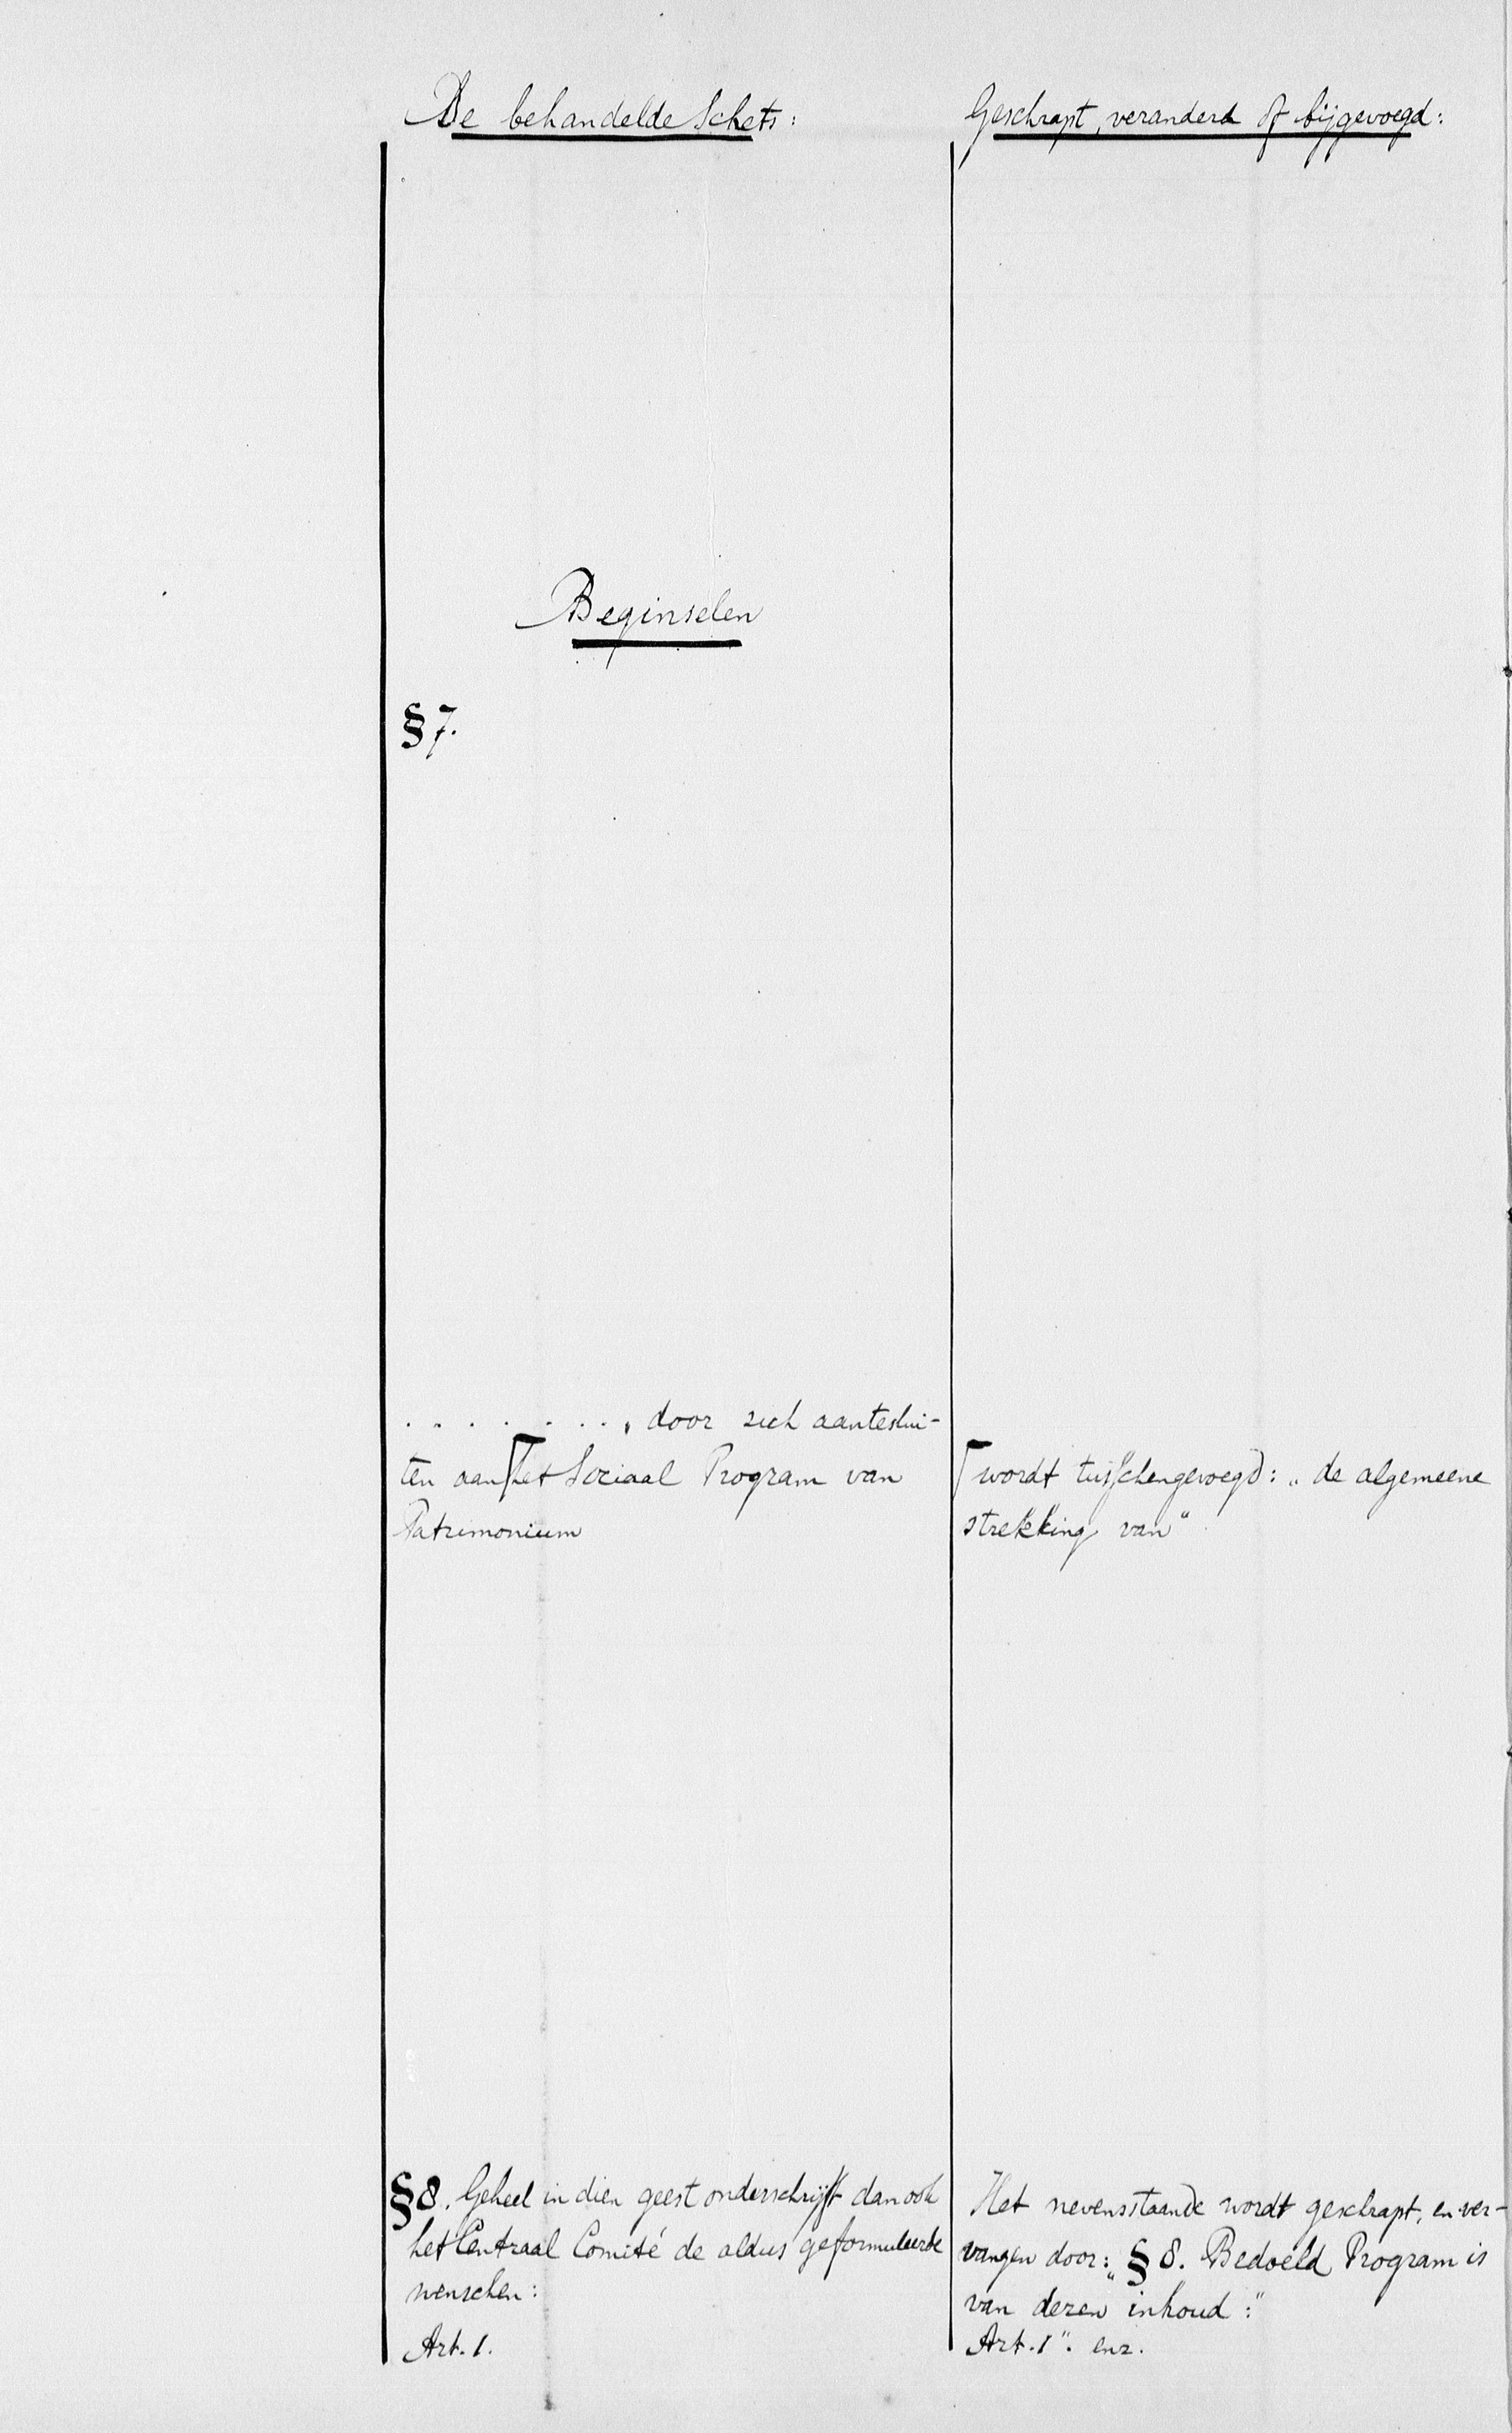 De behandelde Schets:
Geschrapt, veranderd of bijgevoegd:
Beginselen
§ 7.
. . . . . . . , door zich aanteslui-
ten aan⌈het Sociaal Program van
Patrimonium
⌈wordt tusschengevoegd: „de algemeene
strekking van“
§ 8. Geheel in dien geest onderschrijft dan ook
het Centraal Comité de aldus geformuleerde
wenschen:
Art. 1.
Het nevensstaande wordt geschrapt, en ver-
vangen door: „§ 8. Bedoeld Program is
van dezen inhoud:“
Art. 1“. enz.